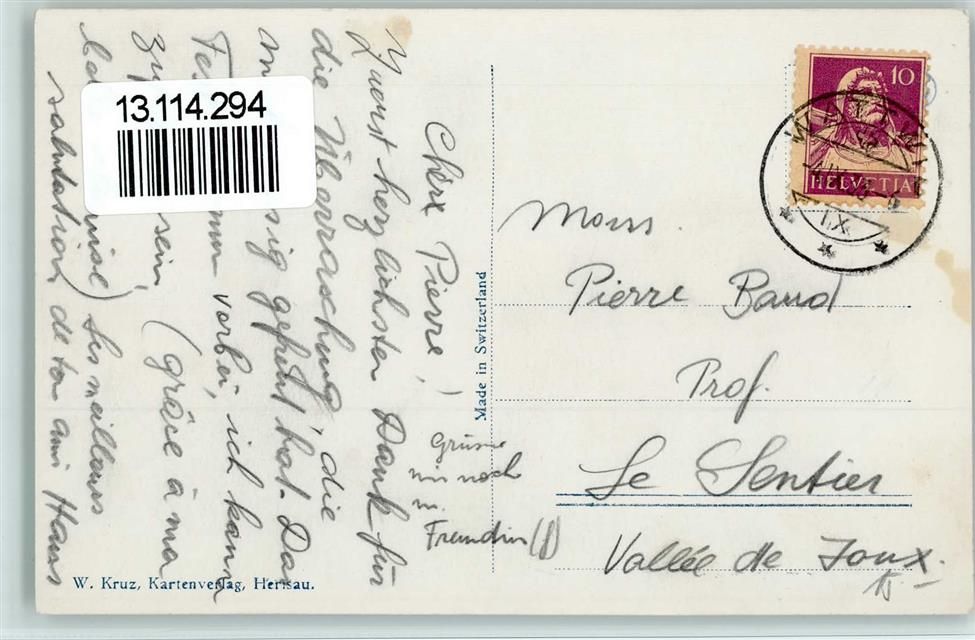 13.114.294
Chèr Pierre!
Zuerst herzlichsten Dank für
die Überraschung, die
mich sig gefreut hat. Das
Fest nun vorbei, ich kann
zu sein, (grâce à ma
ses meilleures
salutations de ton ami Hans
Grüsse
mir noch
m.
Freundin (!)
Made in Switzerland
10
HELVETIA
IX
Mons.
Pierre Baud
Prof.
Le Sentier
Vallée de Joux.
W. Kruz, Kartenverlag, Herisau.